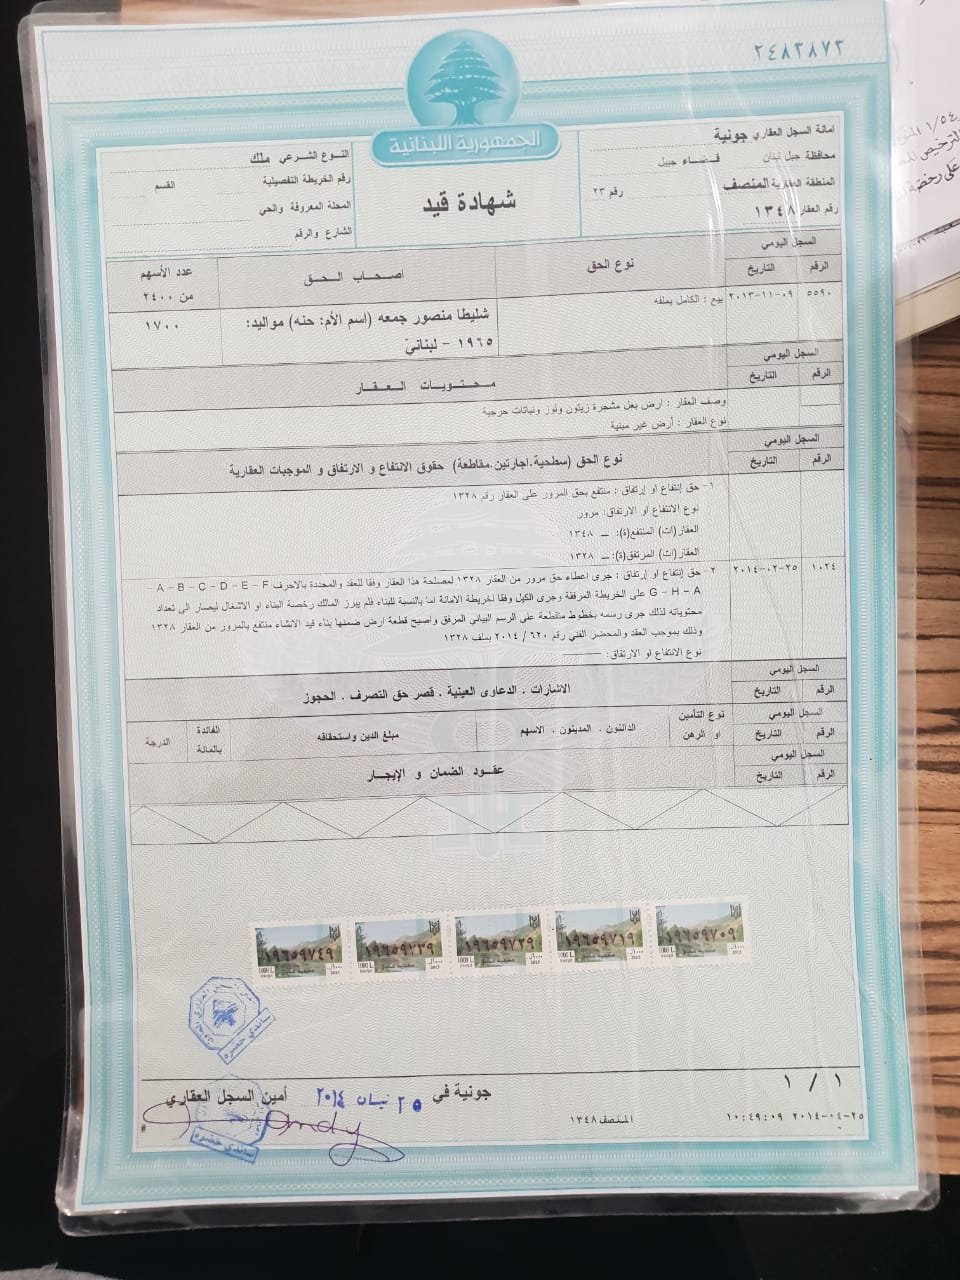 ٢٤٨٣٨٧٢
الجمهورية اللبنانية
شهادة قيد
امانة السجل العقاري جونية
محافظة جبل لبنان قضاء جبيل
المنطقة العقارية المنصف رقم ٢٣
رقم العقار ١٣٤٨
النوع الشرعي ملك
رقم الخريطة التفصيلية القسم
المحلة المعروفة والحي
الشارع والرقم
السجل اليومي
الرقم التاريخ نوع الحق اصحاب الحق عدد الأسهم من ٢٤٠٠
٥٥٩٠ ٢٠١٣-١١-٠٩ بيع : الكامل بملفه شليطا منصور جمعه (اسم الأم: حنه) مواليد: ١٧٠٠
١٩٦٥ - لبنانيّ
السجل اليومي
الرقم التاريخ محتويات العقار
وصف العقار : ارض بعل مشجرة زيتون ولوز ونباتات حرجية
نوع العقار : أرض غير مبنية
السجل اليومي
الرقم التاريخ نوع الحق (سطحية.اجارتين.مقاطعة) حقوق الانتفاع و الارتفاق و الموجبات العقارية
١- حق إنتفاع او إرتفاق : منتفع بحق المرور على العقار رقم ١٣٢٨
نوع الانتفاع او الارتفاق: مرور
العقار(ات) المنتفع(ة): ــ ١٣٤٨
العقار(ات) المرتفق(ة): ــ ١٣٢٨
١٠٢٤ ٢٠١٤-٠٢-٢٥ ٢- حق إنتفاع او إرتفاق : جرى اعطاء حق مرور من العقار ١٣٢٨ لمصلحة هذا العقار وفقا للعقد والمحددة بالاحرف A - B - C - D - E - F -
G - H - A على الخريطة المرفقة وجرى الكيل وفقا لخريطة الامانة اما بالنسبة للبناء فلم يبرز المالك رخصة البناء او الاشغال ليصار الى تعداد
محتوياته لذلك جرى رسمه بخطوط متقطعة على الرسم البياني المرفق واصبح قطعة ارض ضمنها بناء قيد الانشاء منتفع بالمرور من العقار ١٣٢٨
وذلك بموجب العقد والمحضر الفني رقم ٦٢٠ / ٢٠١٤ بملف ١٣٢٨
نوع الانتفاع او الارتفاق:
السجل اليومي
الرقم التاريخ الاشارات . الدعاوى العينية . قصر حق التصرف . الحجوز
السجل اليومي
الرقم التاريخ نوع التأمين او الرهن الدائنون . المدينون . الاسهم مبلغ الدين واستحقاقه الفائدة بالمائة الدرجة
السجل اليومي
الرقم التاريخ عقود الضمان و الإيجار
١٩٦٥٩٧٤٩ ١٩٦٥٩٧٣٩ ١٩٦٥٩٧٢٩ ١٩٦٥٩٧١٩ ١٩٦٥٩٧٠٩
1000 L. 1000 L. 1000 L. 1000 L. 1000 L.
2013 2013 2013 2013 2013
ساندي خضره
١ / ١
جونية في ٢٥ نيسان ٢٠١٤ أمين السجل العقاري
٢٠١٤-٠٤-٢٥ ١٠:٤٩:٠٩
المنصف ١٣٤٨
ساندي خضره